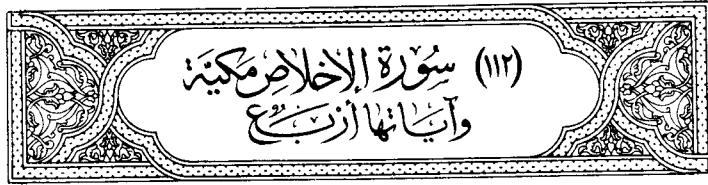 (١١٢) سُورَة الإخلاص مكيَّة
وآياتها أربع